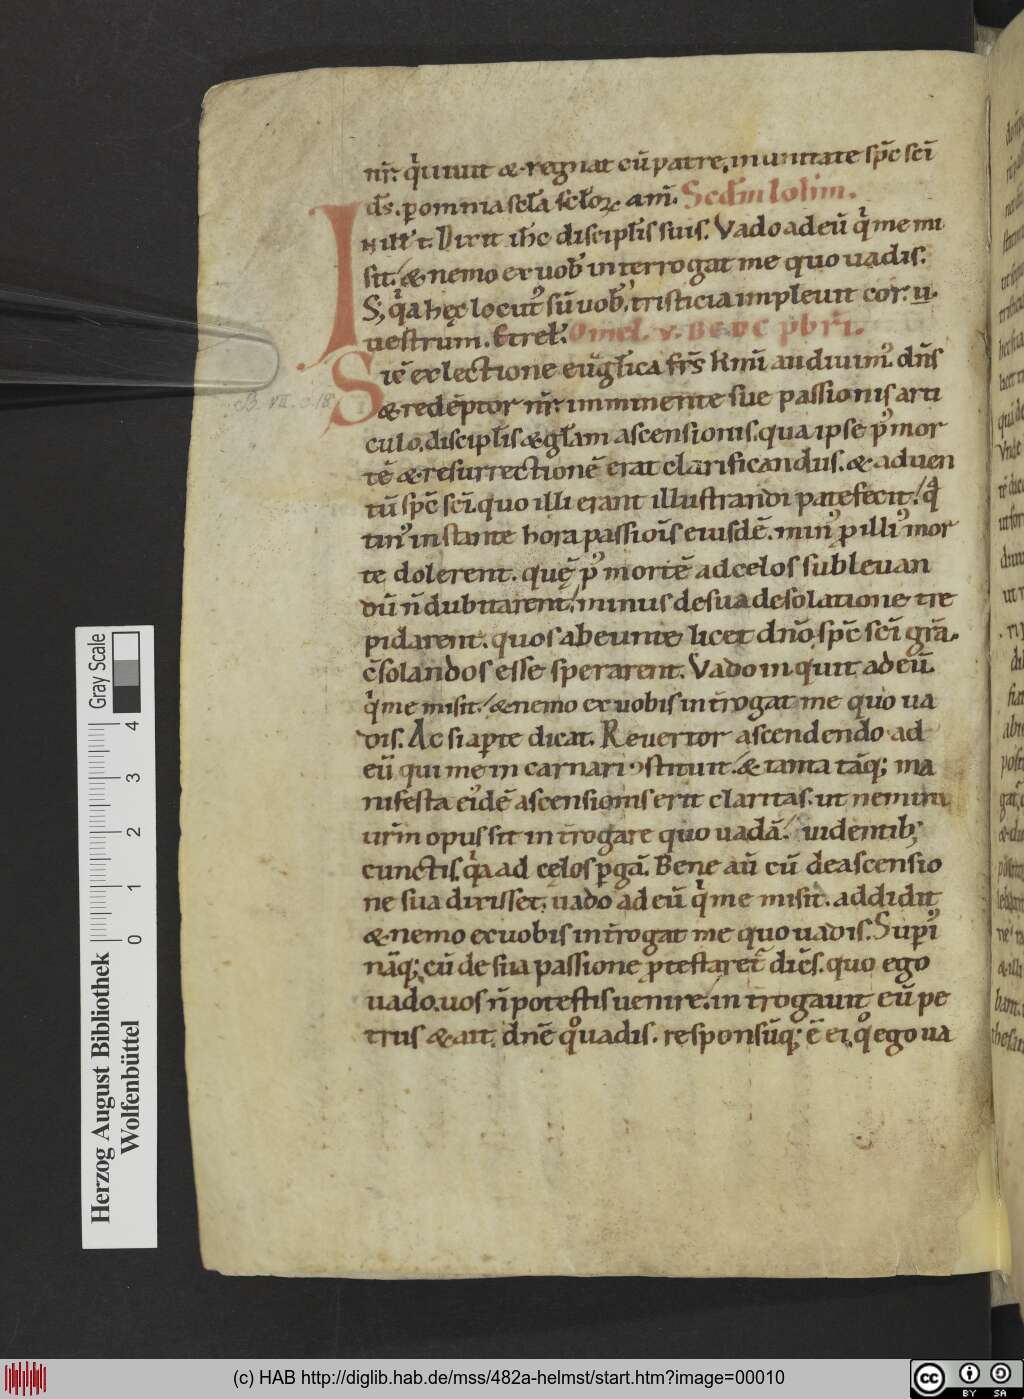 nr̄. qͥ uiuit & regnat cū patre, in unitate sp̄c sc̄i
d̄s. p omnia sc̄la sc̄loꝝ. am̄. Scd̄m Ioh̄m.
IN ill̄ t̄. Dixit ih̄c discipl̄is suis. Vado ad eū qͥ me mi
sit. & nemo ex uob̄ interrogat me quo uadis.
S; qͥa hęc locut᷒ sū uob̄, tristicia impleuit cor. u.
uestrum. Et rel̄. Omel. v. BEDE pb̄ri.
Sic̄ ex lectione euḡlica fr̄s km̄i audiuim᷒. dn̄s
& redēptor nr̄. imminente sue passionis arti
culo. discipl̄is & gl̄am ascensionis. qua ipse p᷒ mor
tē & resurrectionē erat clarificandus. & aduen
tū sp̄c sc̄i. quo illi erant illustrandi patefecit. qͣ
tin᷒ instante hora passiōis eiusdē. min᷒ p illi᷒ mor
te dolerent. quę̄ p᷒ mortē ad celos subleuan
dū n̄ dubitarent. minus de sua desolatione tre
pidarent. quos abeunte licet dn̄o sp̄c sc̄i gr̄a
c̄solandos esse sperarent. Vado inquit ad eū.
qͥ me misit. & nemo ex uobis int̄rogat me quo ua
dis. Ac si apte dicat. Reuertor ascendendo ad
eū qui me incarnari ↄstituit. & tanta tāq; ma
nifesta ei᷒dē ascensionis erit claritas. ut nemini
ur̄m opus sit int̄rogare quo uadā. uidentib;
cunctis. qͥa ad cęlos pgā. Bene aū cū de ascensio
ne sua dixisset. uado ad eū qͥ me misit. addidit
& nemo ex uobis int̄rogat me quo uadis. Superi᷒
nāq; cū de sua passione p̱testaret̄ dic̄s. quo ego
uado. uos n̄ potestis uenire. introgauit eū pe
trus & ait. dn̄e qͦ uadis. responsūq; ē ei. qͦ ego ua
B. VII. c. 18
Gray Scale
0 1 2 3 4
Herzog August Bibliothek
Wolfenbüttel
(c) HAB http://diglib.hab.de/mss/482a-helmst/start.htm?image=00010
cc BY SA